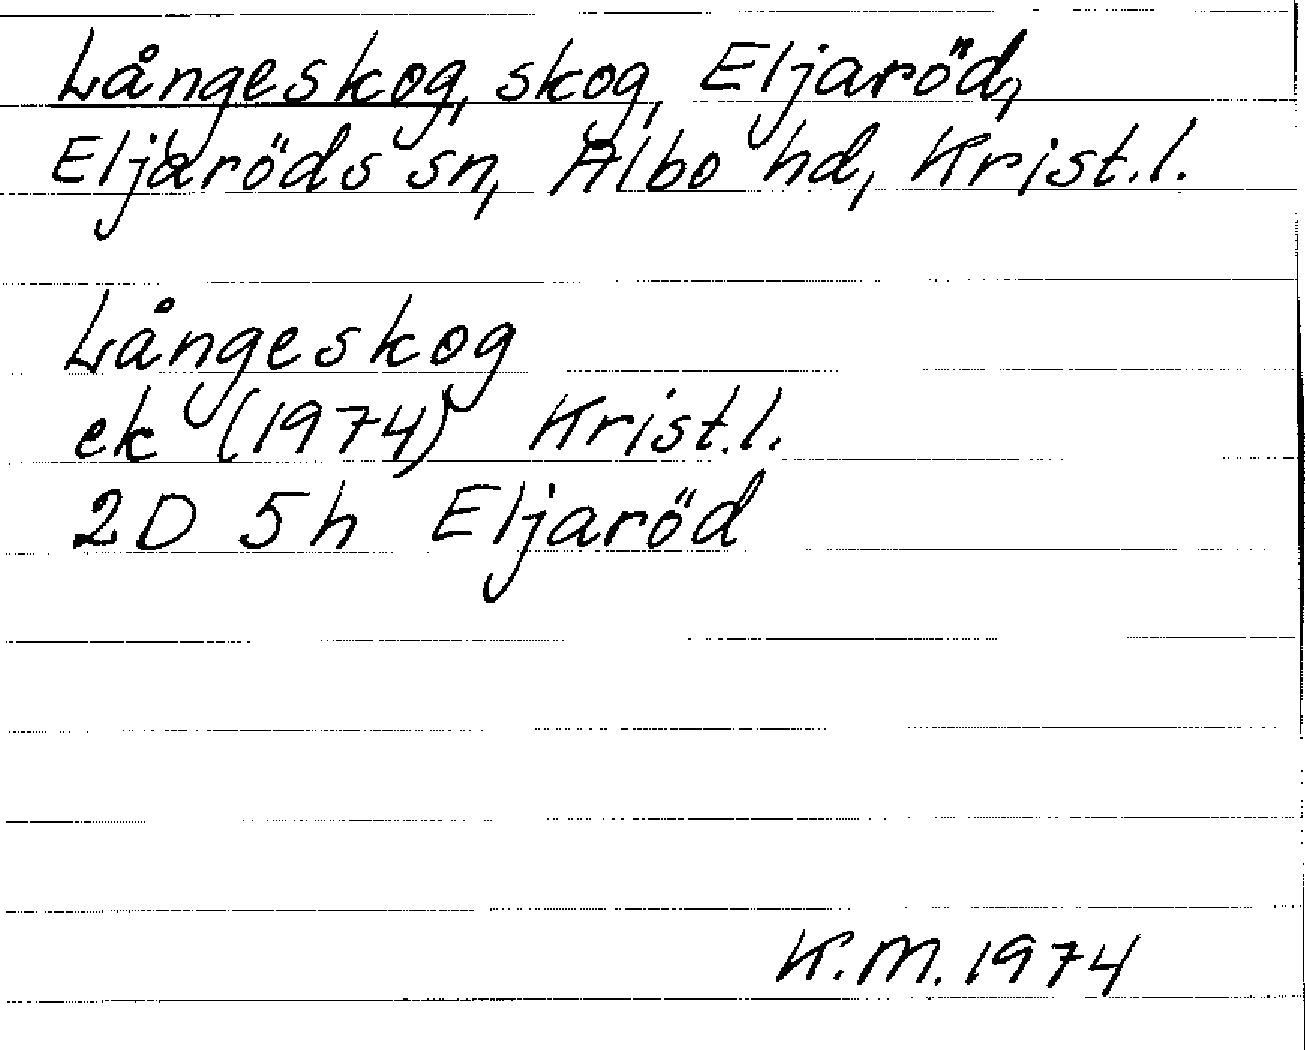 Långeskog, skog, Eljaröd,
Eljaröds sn, Albo hd, Krist.l.
Långeskog
ek (1974) Krist.l.
2D 5h Eljaröd
K.M. 1974